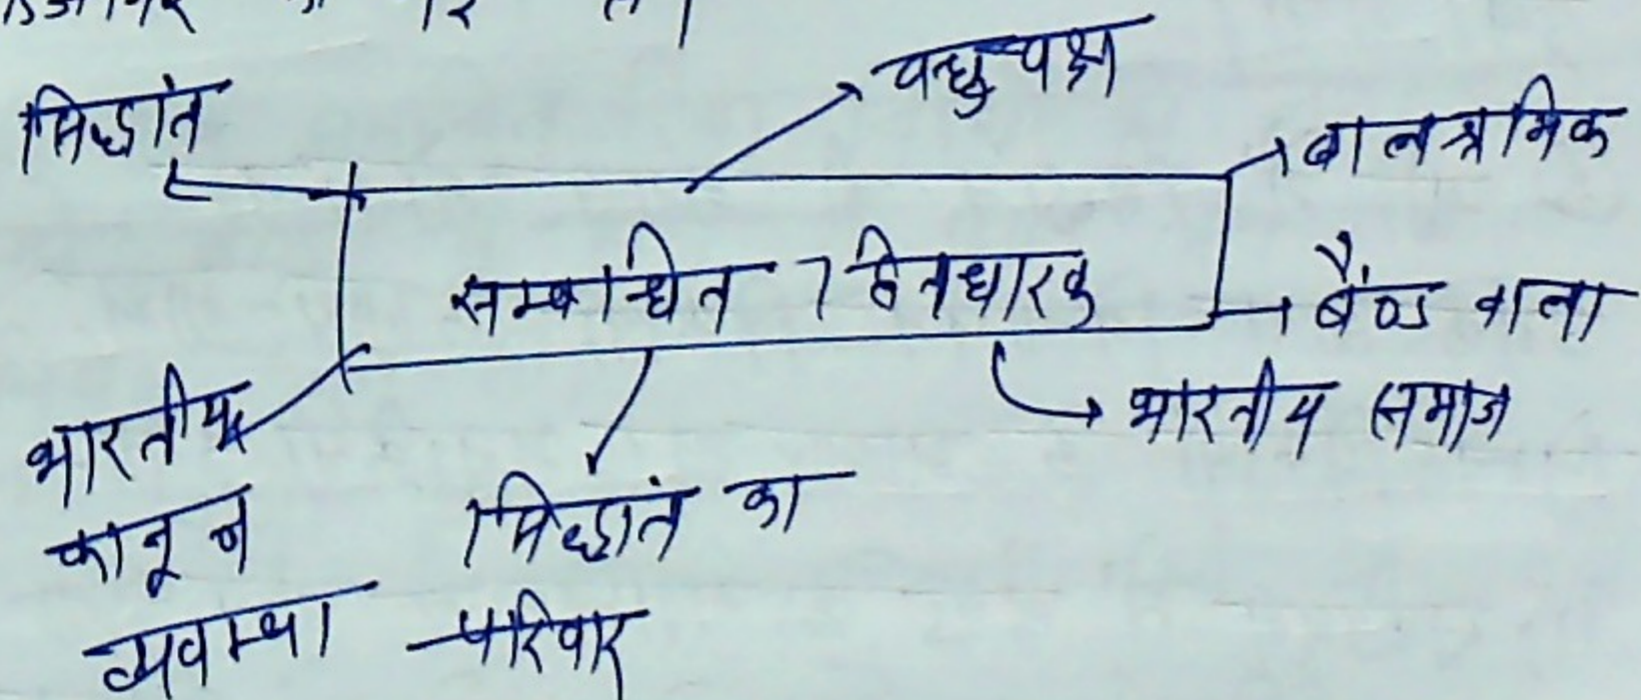 वधुपक्ष
सिद्धांत
बालश्रमिक
सम्बन्धित हितधारक
बैंण्ड वाला
भारतीय समाज
भारतीय
कानून
व्यवस्था
सिद्धांत का
परिवार